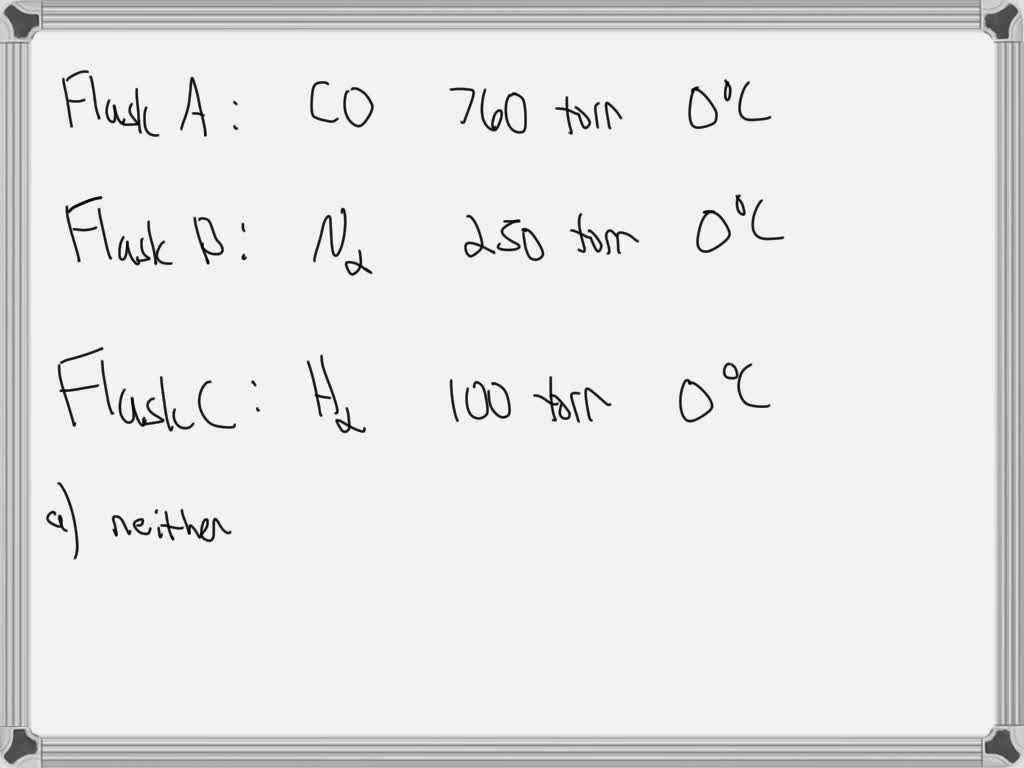 Flask A: CO 760 torr 0°C
Flask B: N₂ 250 torr 0°C
Flask C: H₂ 100 torr 0°C
a) neither